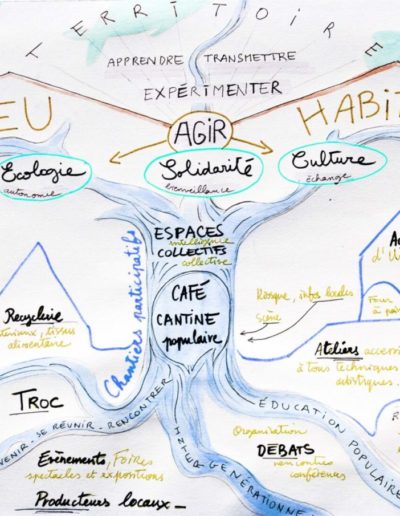 TERRITOIRE
APPRENDRE TRANSMETTRE
EXPÉRIMENTER
EU
HABIT
AGIR
Ecologie
autonomie
Solidarité
bienveillance
Culture
échange
ESPACES
intelligence
COLLECTIFS
collective
Chantiers participatifs
CAFÉ
CANTINE
populaire
Kiosque, infos locales
Scène
Four
à pain
Recyclerie
tissus
alimentaire
Ateliers
à tous techniques
TROC
VENIR - SE RÉUNIR - RENCONTRER
INTER-GÉNÉRATIONNEL
ÉDUCATION POPULAIRE
Organisation
DÉBATS
rencontres
conférences
Evènements, Foires
spectacles et expositions
Producteurs locaux_